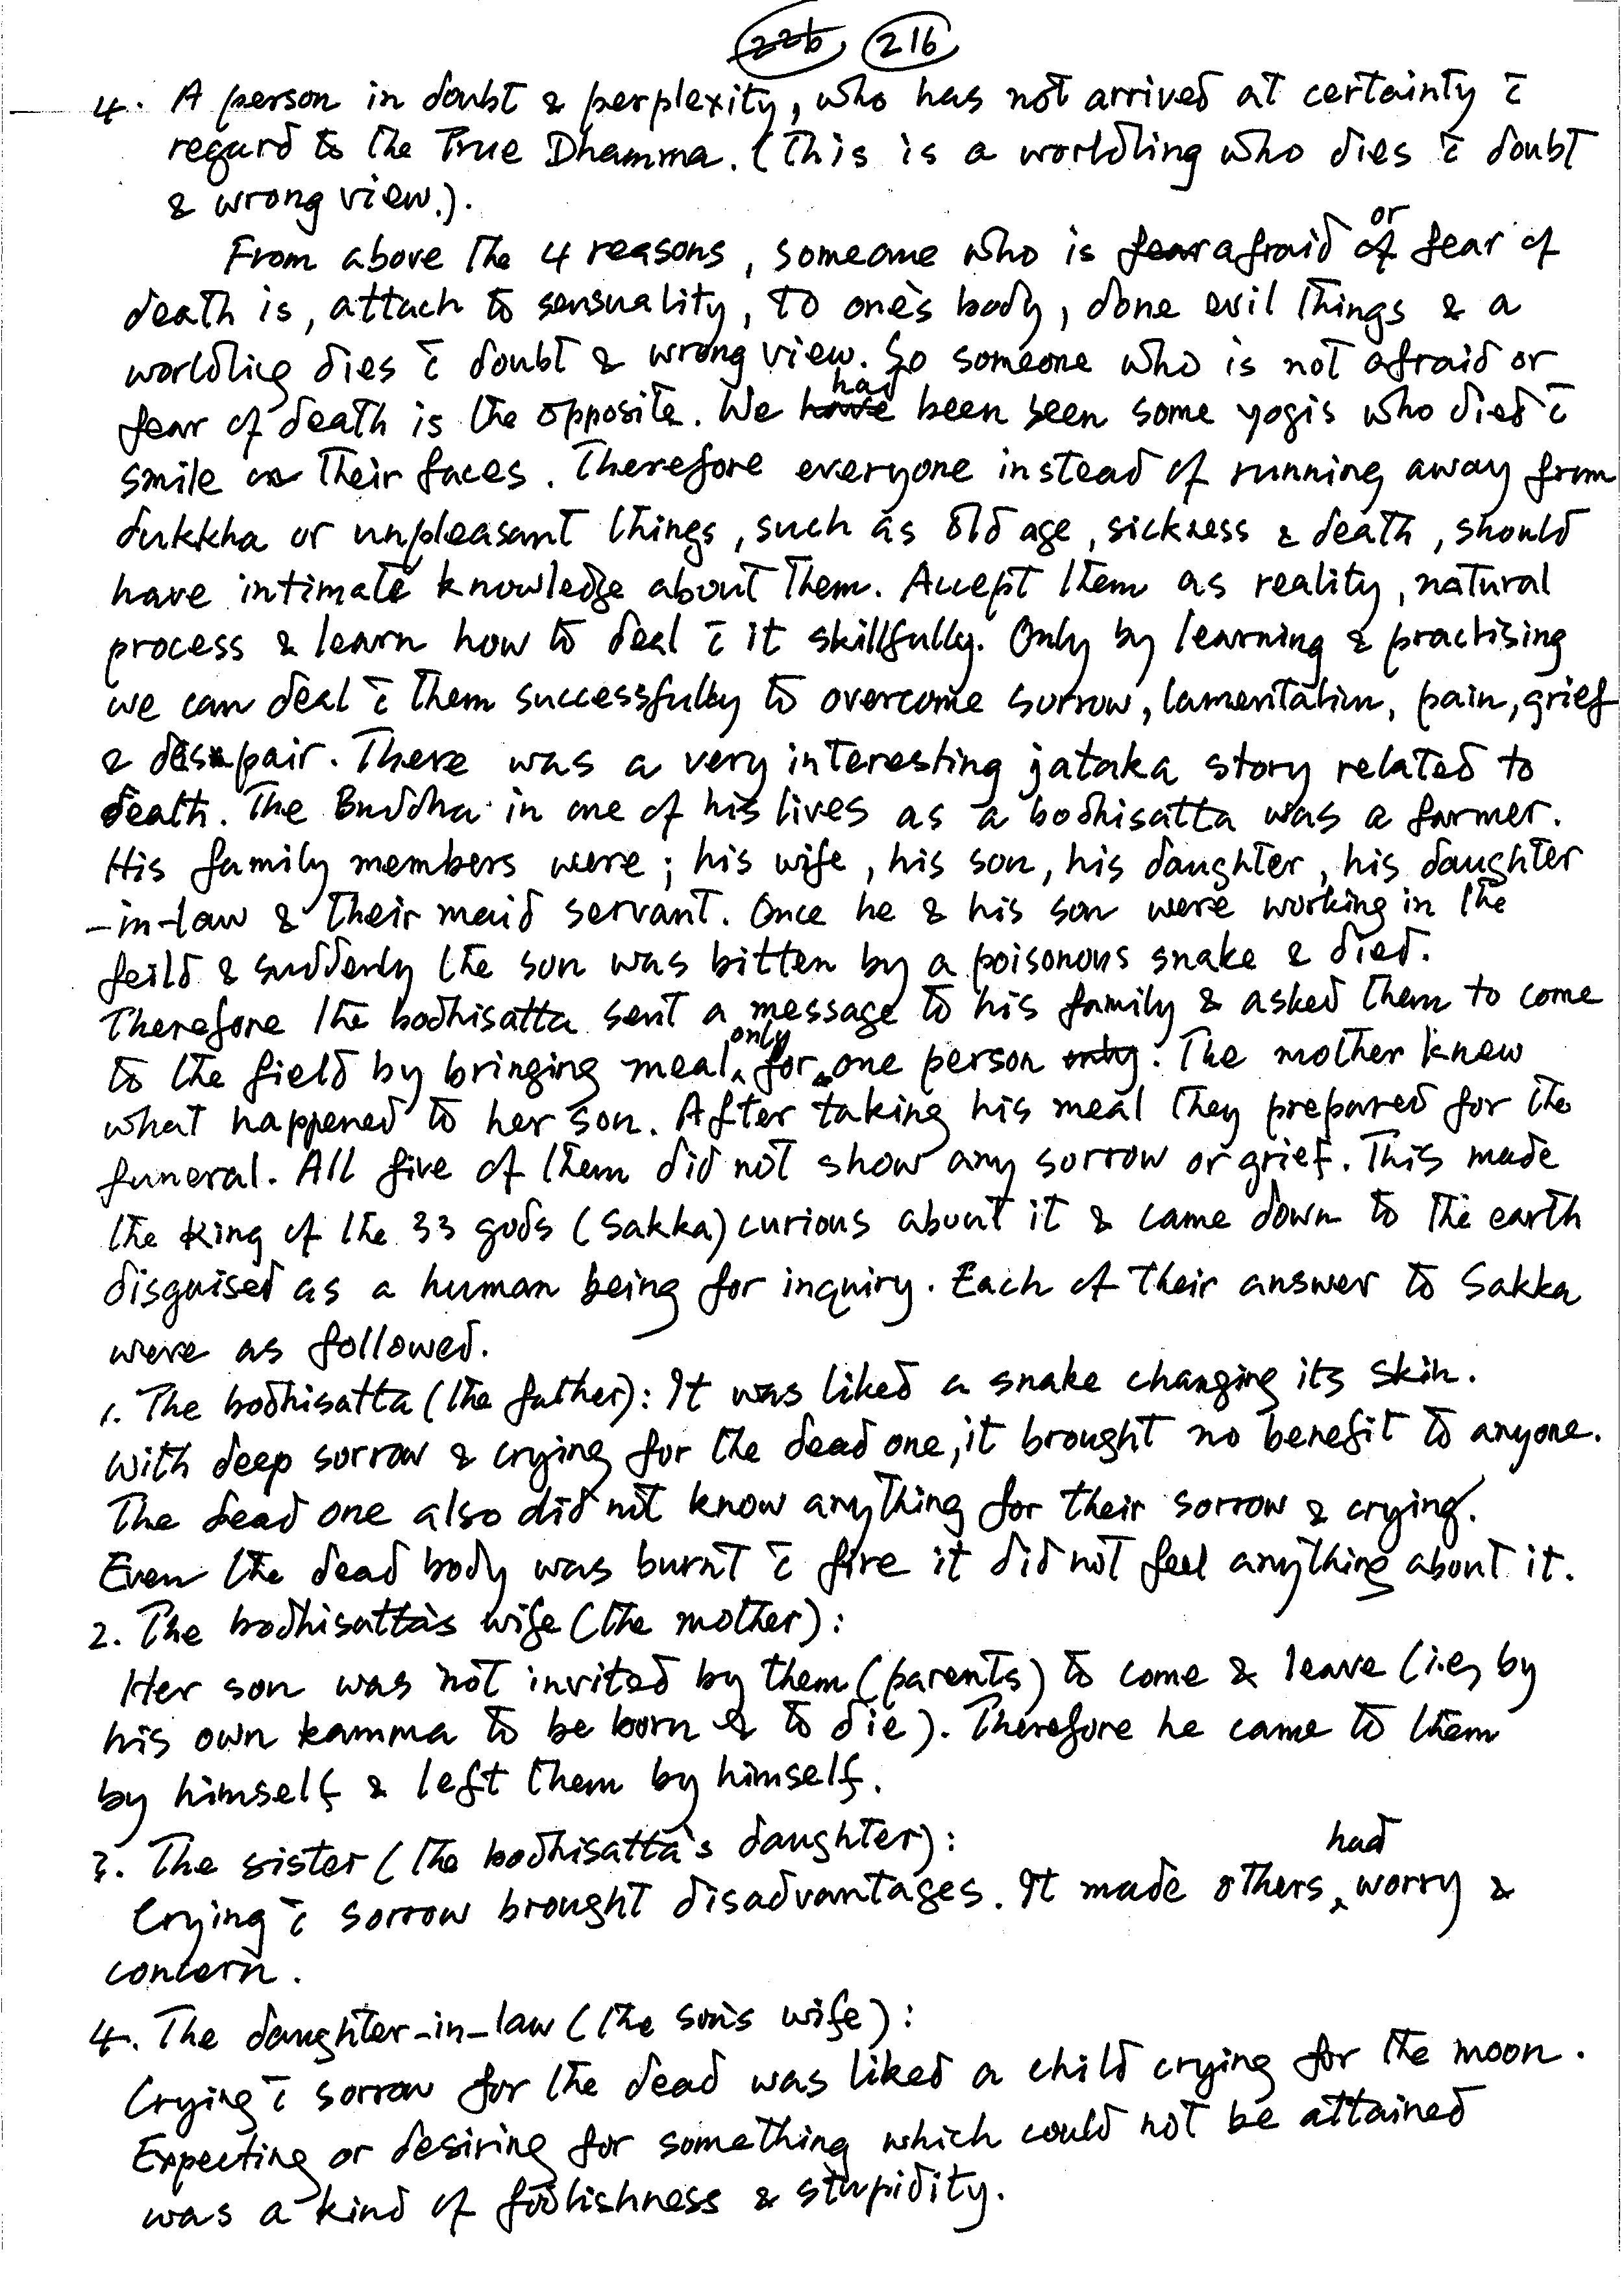 226, 216
4. A person in doubt & perplexity, who has not arrived at certainty c̄
regard to the True Dhamma. (This is a worldling who dies c̄ doubt
& wrong view.).
From above the 4 reasons, someone who is fear afraid of or fear of
death is, attach to sensuality, to one's body, done evil things & a
worldling dies c̄ doubt & wrong view. So someone who is not afraid or
fear of death is the opposite. We have had been seen some yogis who died c̄
smile on their faces. Therefore everyone instead of running away from
dukkha or unpleasant things, such as old age, sickness & death, should
have intimate knowledge about them. Accept them as reality, natural
process & learn how to deal c̄ it skillfully. Only by learning & practising
we can deal c̄ them successfully to overcome sorrow, lamentation, pain, grief
& despair. There was a very interesting jataka story related to
death. The Buddha in one of his lives as a bodhisatta was a farmer.
His family members were; his wife, his son, his daughter, his daughter
-in-law & their maid servant. Once he & his son were working in the
feild & suddenly the son was bitten by a poisonous snake & died.
Therefore the bodhisatta sent a message to his family & asked them to come
to the field by bringing meal only for one person only. The mother knew
what happened to her son. After taking his meal they prepared for the
funeral. All five of them did not show any sorrow or grief. This made
the king of the 33 gods (Sakka) curious about it & came down to the earth
disguised as a human being for inquiry. Each of their answer to Sakka
were as followed.
1. The bodhisatta (the father): It was liked a snake changing its skin.
With deep sorrow & crying for the dead one, it brought no benefit to anyone.
The dead one also did not know anything for their sorrow & crying.
Even the dead body was burnt c̄ fire it did not feel anything about it.
2. The bodhisatta's wife (the mother):
Her son was not invited by them (parents) to come & leave (i.e, by
his own kamma to be born & to die). Therefore he came to them
by himself & left them by himself.
3. The sister (the bodhisatta's daughter):
Crying c̄ sorrow brought disadvantages. It made others had worry &
concern.
4. The daughter-in-law (the son's wife):
Crying c̄ sorrow for the dead was liked a child crying for the moon.
Expecting or desiring for something which could not be attained
was a kind of foolishness & stupidity.